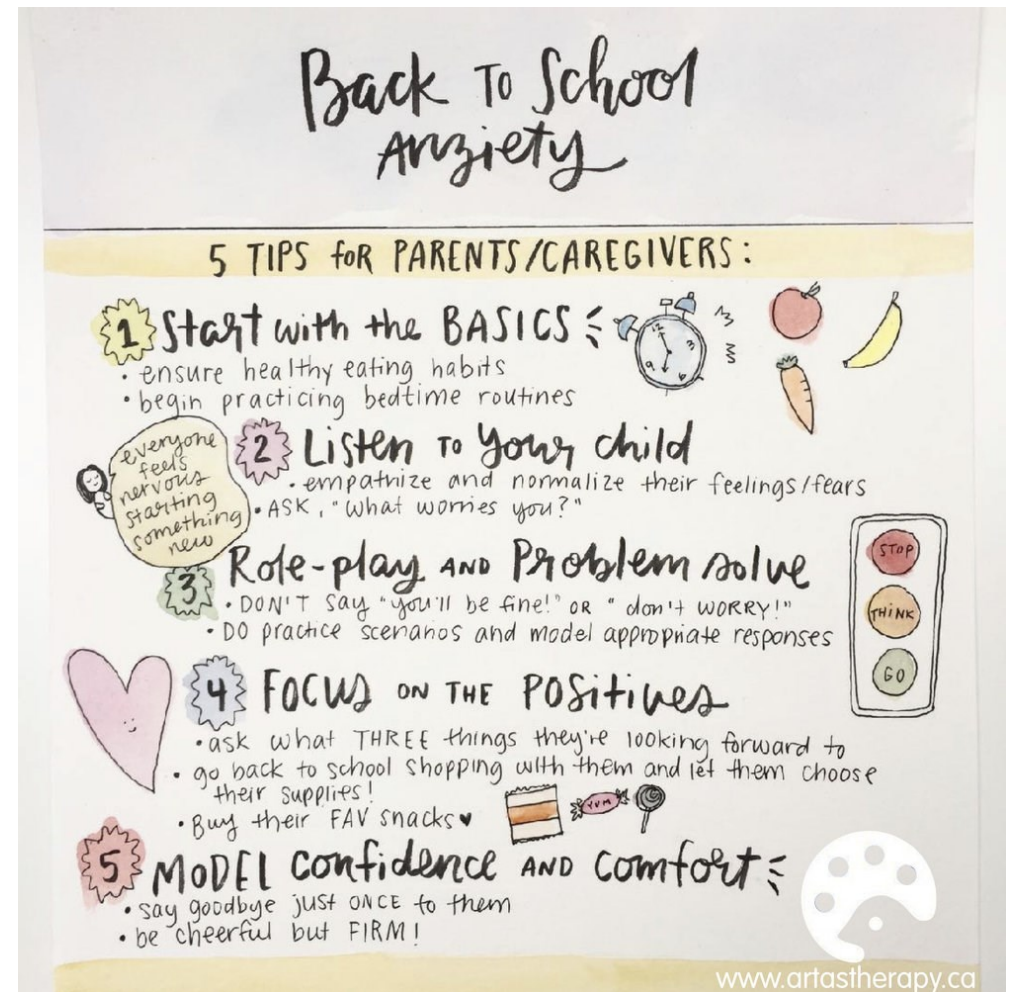 Back To School
Anxiety
5 TIPS for PARENTS/CAREGIVERS:
1 Start with the BASICS
• ensure healthy eating habits
• begin practicing bedtime routines
everyone
feels
nervous
starting
something
new
2 Listen to Your child
• empathize and normalize their feelings/fears
• ASK, "what worries you?"
3 Role-play AND Problem solve
• DON'T say "you'll be fine!" OR "don't WORRY!"
• DO practice scenarios and model appropriate responses
STOP
THINK
GO
4 FOCUS ON THE POSITIVES
• ask what THREE things they're looking forward to
• go back to school shopping with them and let them choose
their supplies!
• Buy their FAV snacks ♥
YUM
5 MODEL confidence AND comfort
• say goodbye just ONCE to them
• be cheerful but FIRM!
www.artastherapy.ca